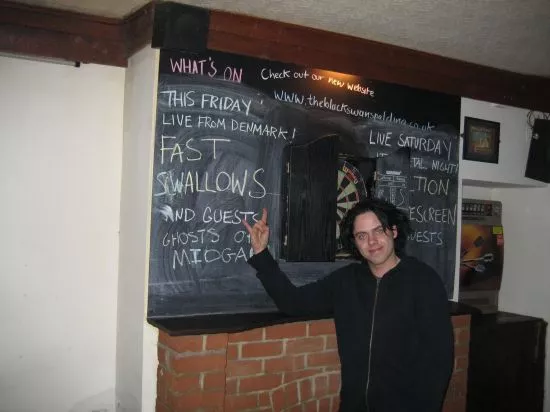 WHAT'S ON
Check out our new website
www.theblackswanspalding.co.uk
THIS FRIDAY!
LIVE FROM DENMARK!
FAST
SWALLOWS
AND GUESTS
GHOSTS OF
MIDGA
LIVE SATURDAY
TAL NIGHT!
TION
ESCREEN
UESTS